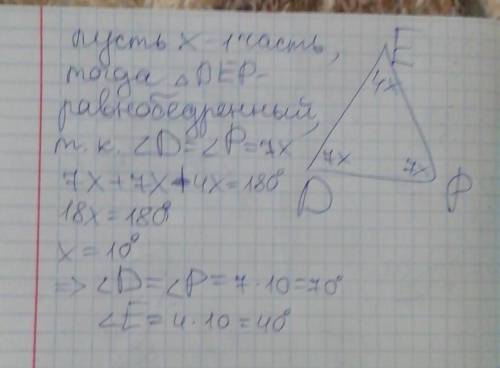 пусть x - 1 часть,
тогда △DEP-
равнобедренный,
т. к. ∠D=∠P=7x
7x+7x+4x=180°
18x=180°
x=10°
=> ∠D=∠P=7·10=70°
∠E=4·10=40°
E
4x
7x 7x
D P